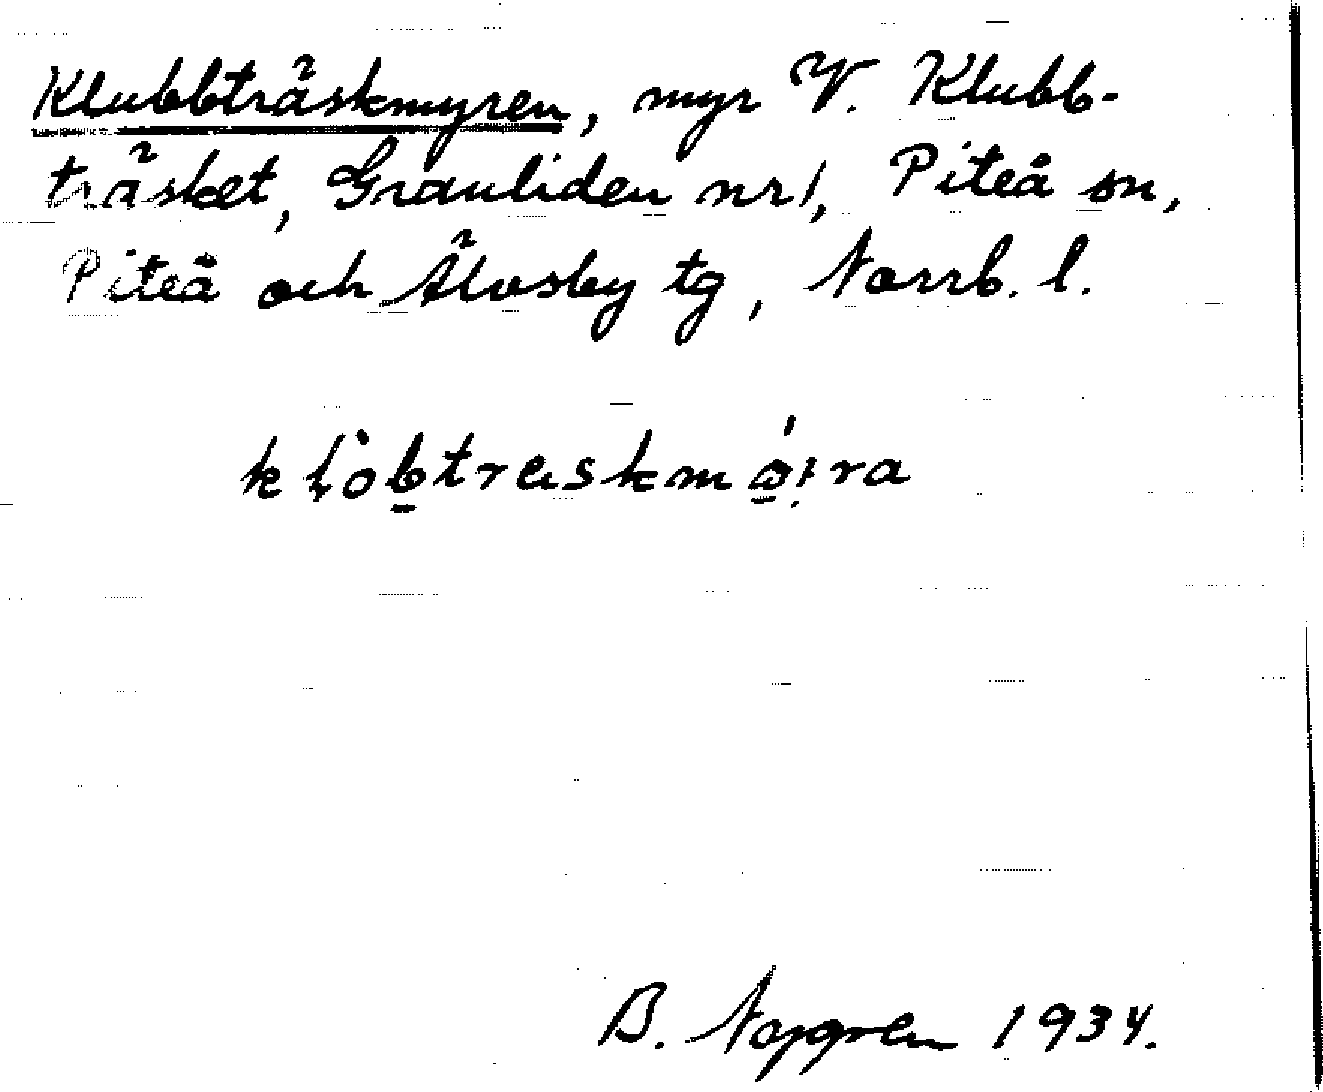 Klubbträskmyren, myr V. Klubb-
träsket, Granliden nr 1, Piteå sn,
Piteå och Älvsby tg, Norrb. l.
B. Noggren 1934.